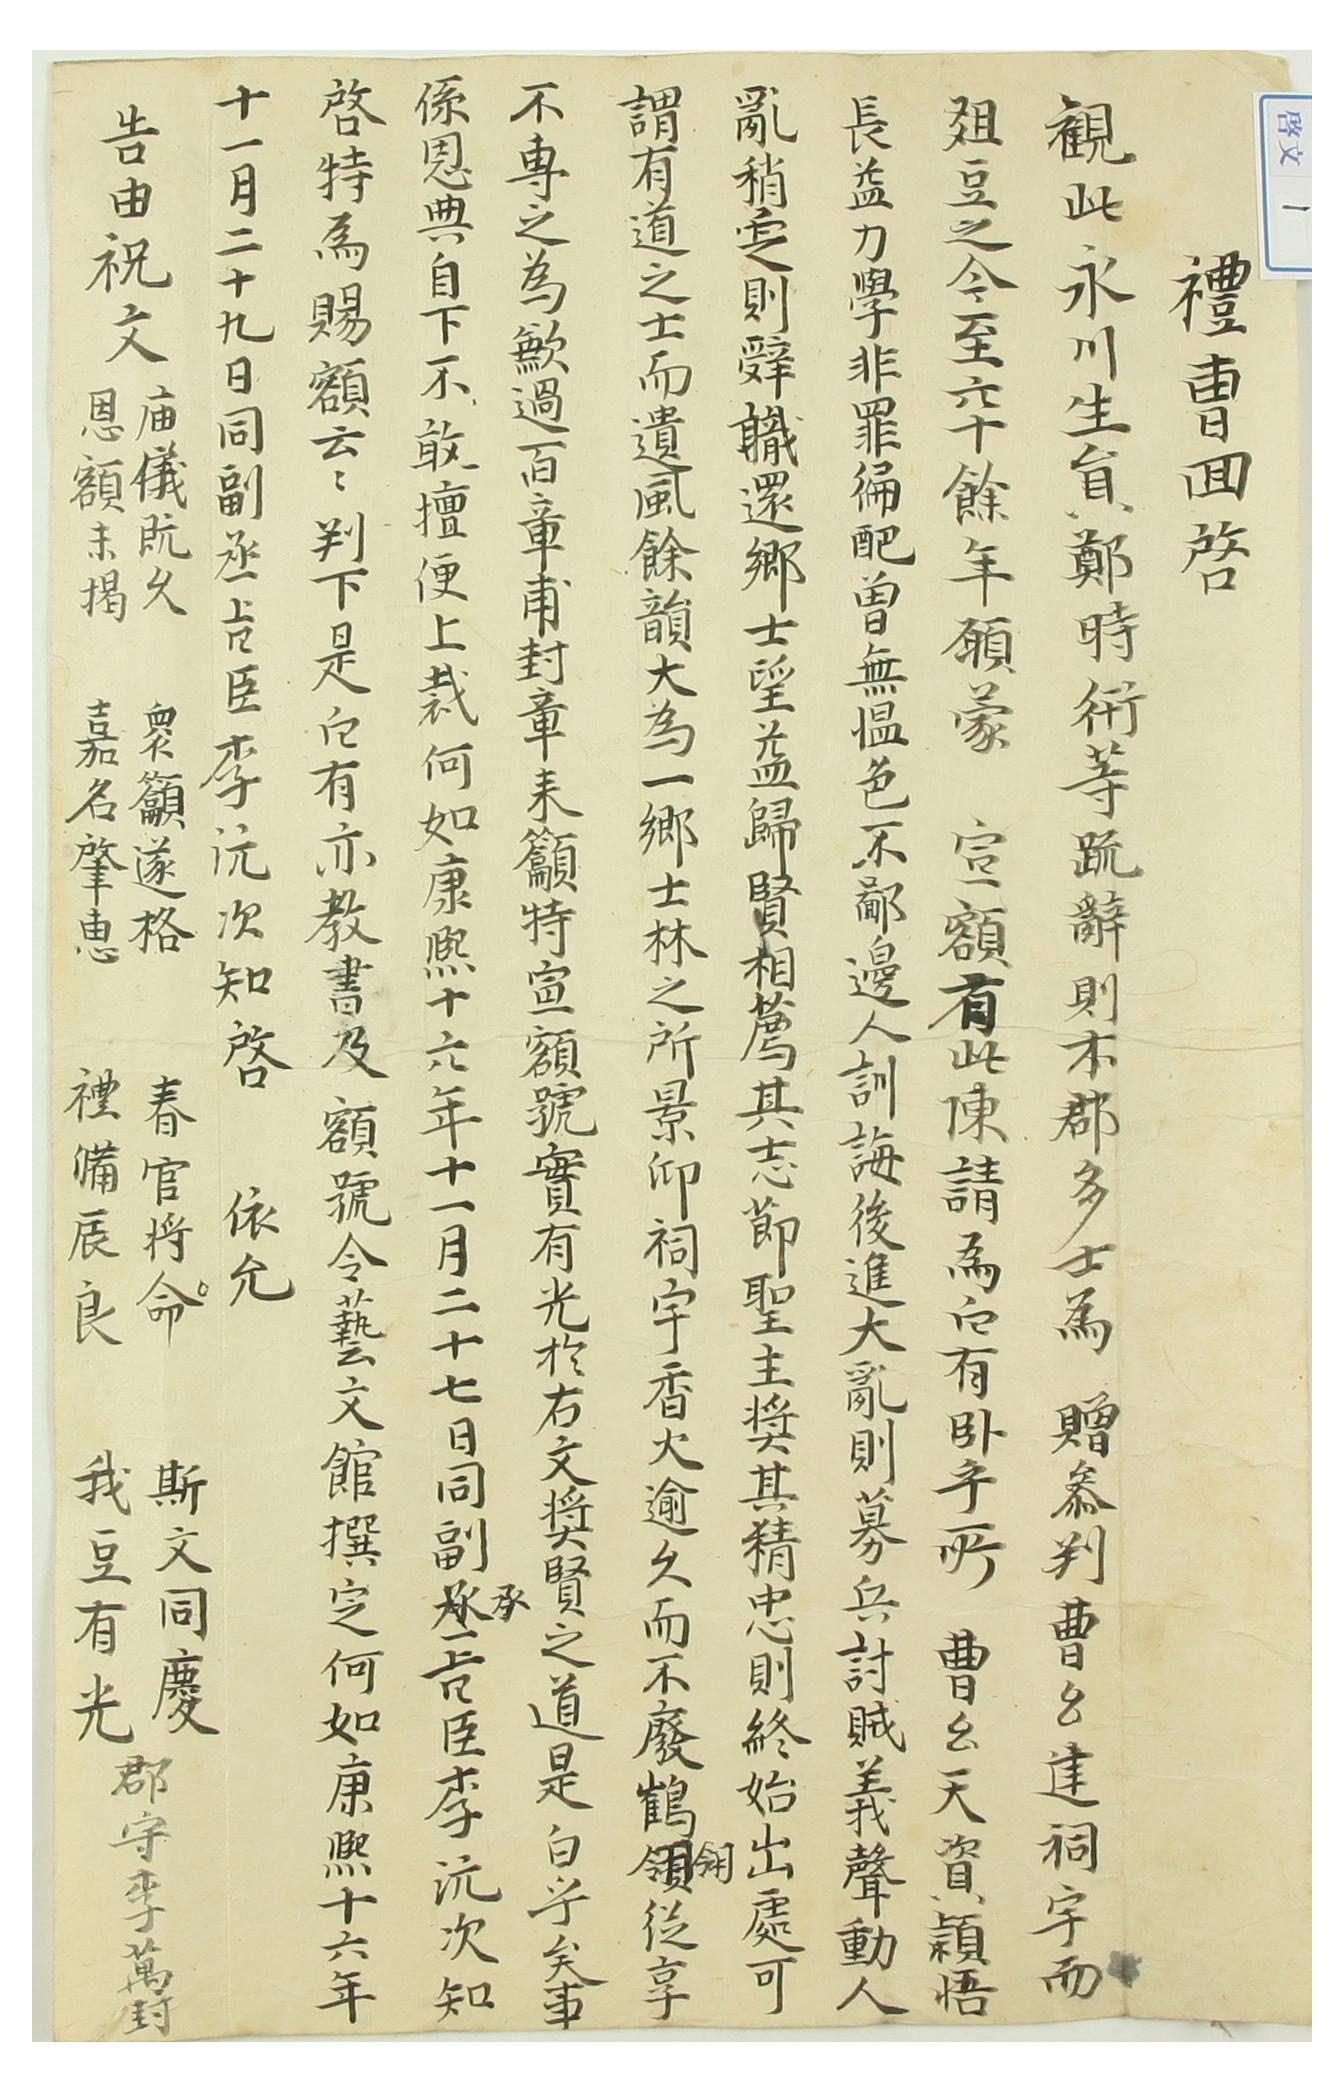 啓文 1
禮曹回啓
觀此永川生員鄭時衍等䟽辭則本郡多士為 贈叅判曹公建祠宇而
俎豆之今至六十餘年願蒙 宣額有此陳請為白有卧乎所 曹公天資穎悟
長益力學非罪徧配曾無慍色不鄙邊人訓誨後進大亂則募兵討賊義聲動人
亂稍定則辭職還鄉士望益歸賢相薦其志節聖主奬其精忠則終始出處可
謂有道之士而遺風餘韻大為一鄉士林之所景仰祠宇香火逾久而不廢鶴領翎從享
不專之為歉過百章甫封章来籲特宣額號實有光於右文奬賢之道是白乎矣事
係恩典自下不敢擅便上裁何如康熙十六年十一月二十七日同副丞承旨臣李沆次知
啓特為賜額云〻判下是白有亦教書及額號令藝文館撰定何如康熙十六年
十一月二十九日同副丞旨臣李沆次知啓 依允
告由祝文 庙儀既久 恩額未揭 衆籲遂格 嘉名肇惠 春官将命 禮備辰良 斯文同慶 我豆有光 郡守李萬封